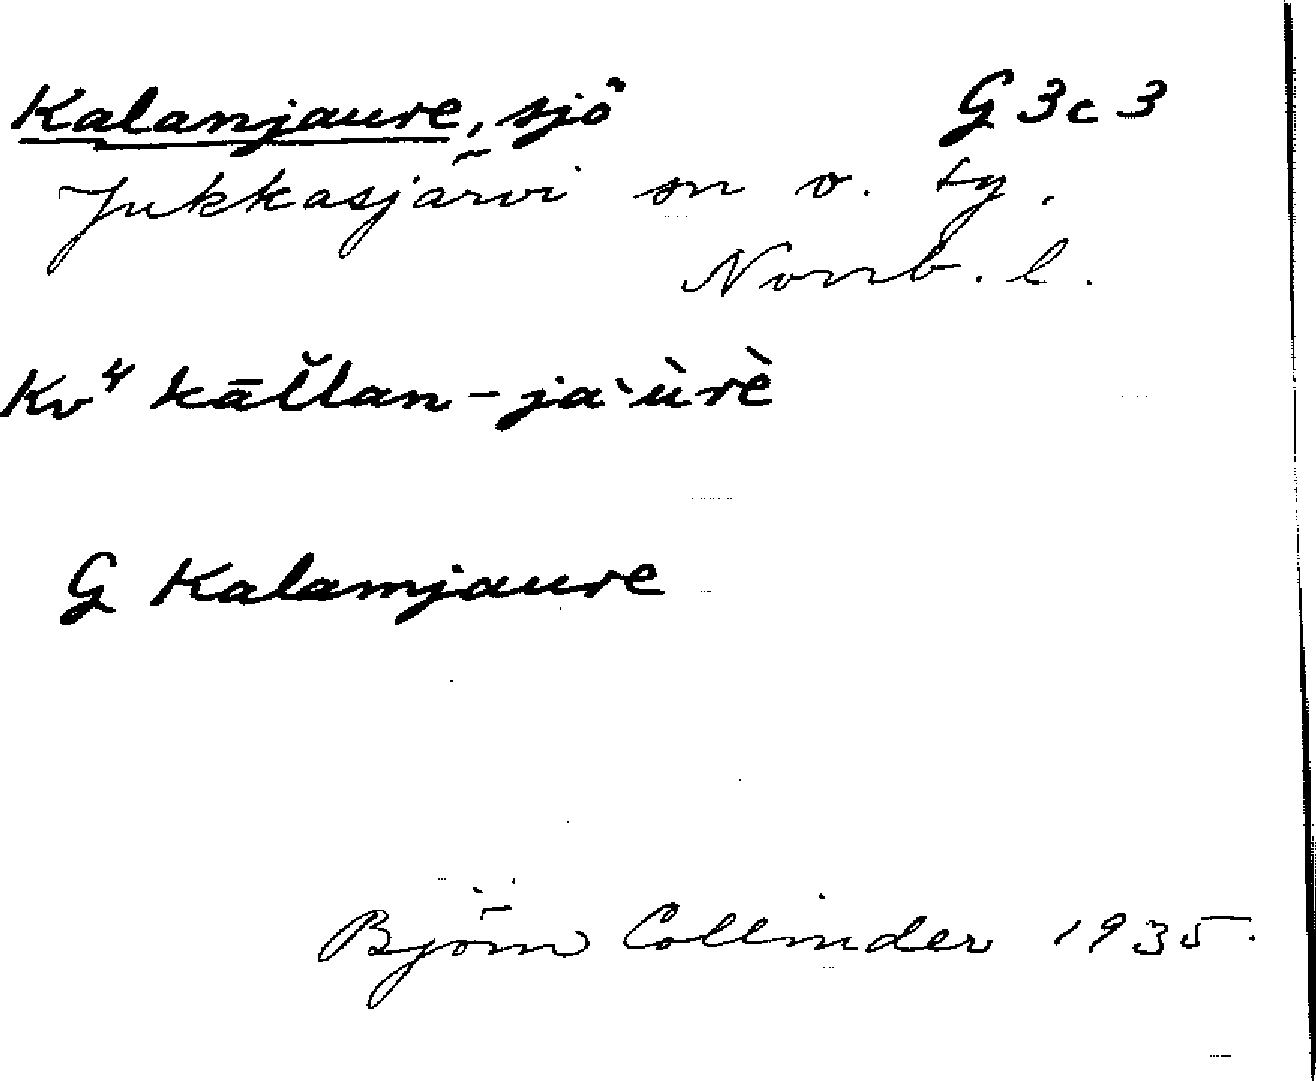 Kalanjaure, sjö G 3c 3
Jukkasjärvi sn o. tg.
Norrb. l.
Kv⁴ kāl̆lan-ja`ùrè
G Kalamjaure
Björn Collinder 1935.